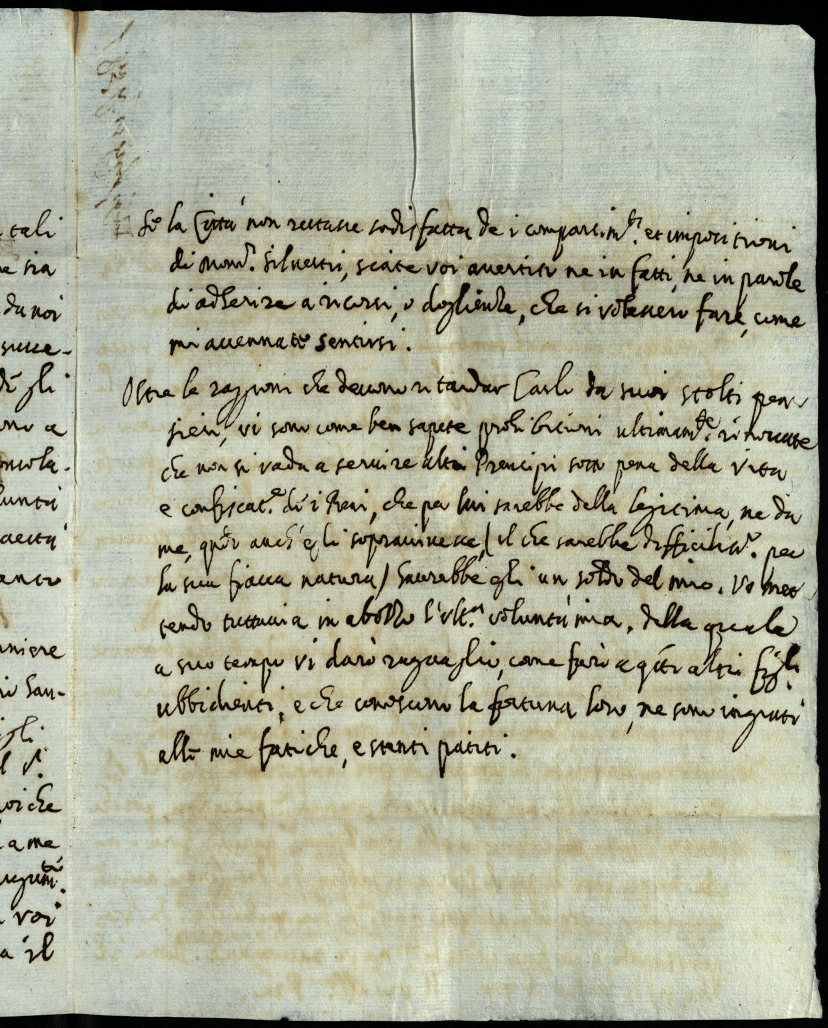 tali
sia
da noi
succe-
gli
a
untà
maestà
maniere
l S.r
voi che
a me
voi
a il
Se la Città non restasse sodisfatta de i compartim.ti et impositioni
di mons.r Silvestri, siate voi avertiti ne in fatti, ne in parole
di adherire a ricorsi, o doglienze, che si volessero fare, come
mi accennate sentirsi.
Oltre le raggioni che devono ritardar Carlo da suoi stolti pen-
sieri, vi sono come ben sapete prohibitioni ultimam.te rinovate
che non si vada a servire altri Prencipi sotto pena della vita
e confiscat.e di i beni, che per lui sarebbe della legitima, ne da
me, q.do anch' egli sopravivesse, (il che sarebbe difficiliss.o per
la sua fiacca natura) haurebbe egli un soldo del mio. Vo met-
tendo tuttavia in abozzo l'ult.a voluntà mia, della quale
a suo tempo vi darò raguaglio, come farò a q.ti altri figli
ubbidienti, e che conoscono la fortuna loro, ne sono ingrati
alle mie fatiche, e stenti patiti.